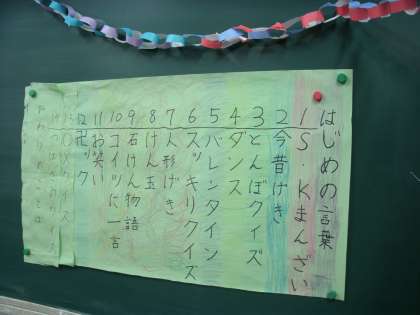 はじめの言葉
1 S・Kまんざい
2 今昔げき
3 とんぼクイズ
4 ダンス
5 バレンタイン
6 スッキリクイズ
7 人形げき
8 けん玉
9 石けん物語
10 コイツに一言
11 お笑い